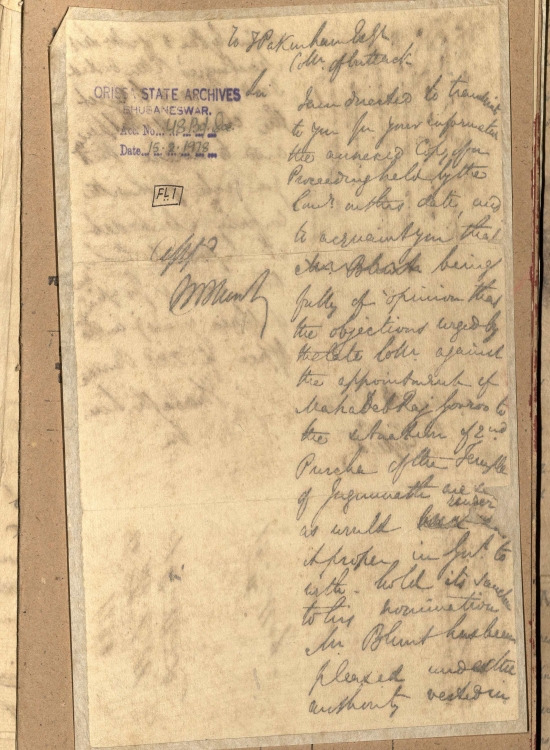 To J Pakenham Esqr
Collr of Cuttack
ORISSA STATE ARCHIVES
BHUBANESWAR.
Acc. No...
Date...15.2.1978
FL1
Sir
I am directed to transmit
to you for your information
the annexed Copy of
Proceeding held by the
this date, and
to acquaint you that
Mr Blunt being
fully of opinion that
the objections urged by
the late Collr against
the appointment of
Mahadeb Raj Gooroo to
the situation of 2nd
Purcha of the Temple
of Juggunnath are
render
as would
it proper in Govt. to
with-hold its sanction
to his nomination
Mr Blunt has been
pleased under the
authority vested in